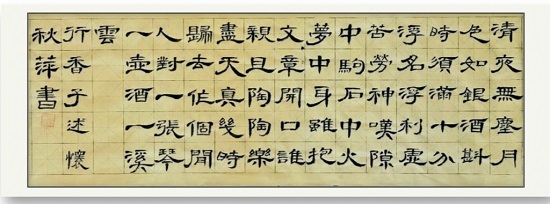 清夜無塵月
色如銀酒斟
時須滿十分
浮名浮利虛
苦勞神嘆隙
中駒石中火
夢中身雖抱
文章開口誰
親且陶陶樂
盡天真幾時
歸去作個閒
人對一張琴
一壺酒一溪
雲
行香子述懷
秋萍書